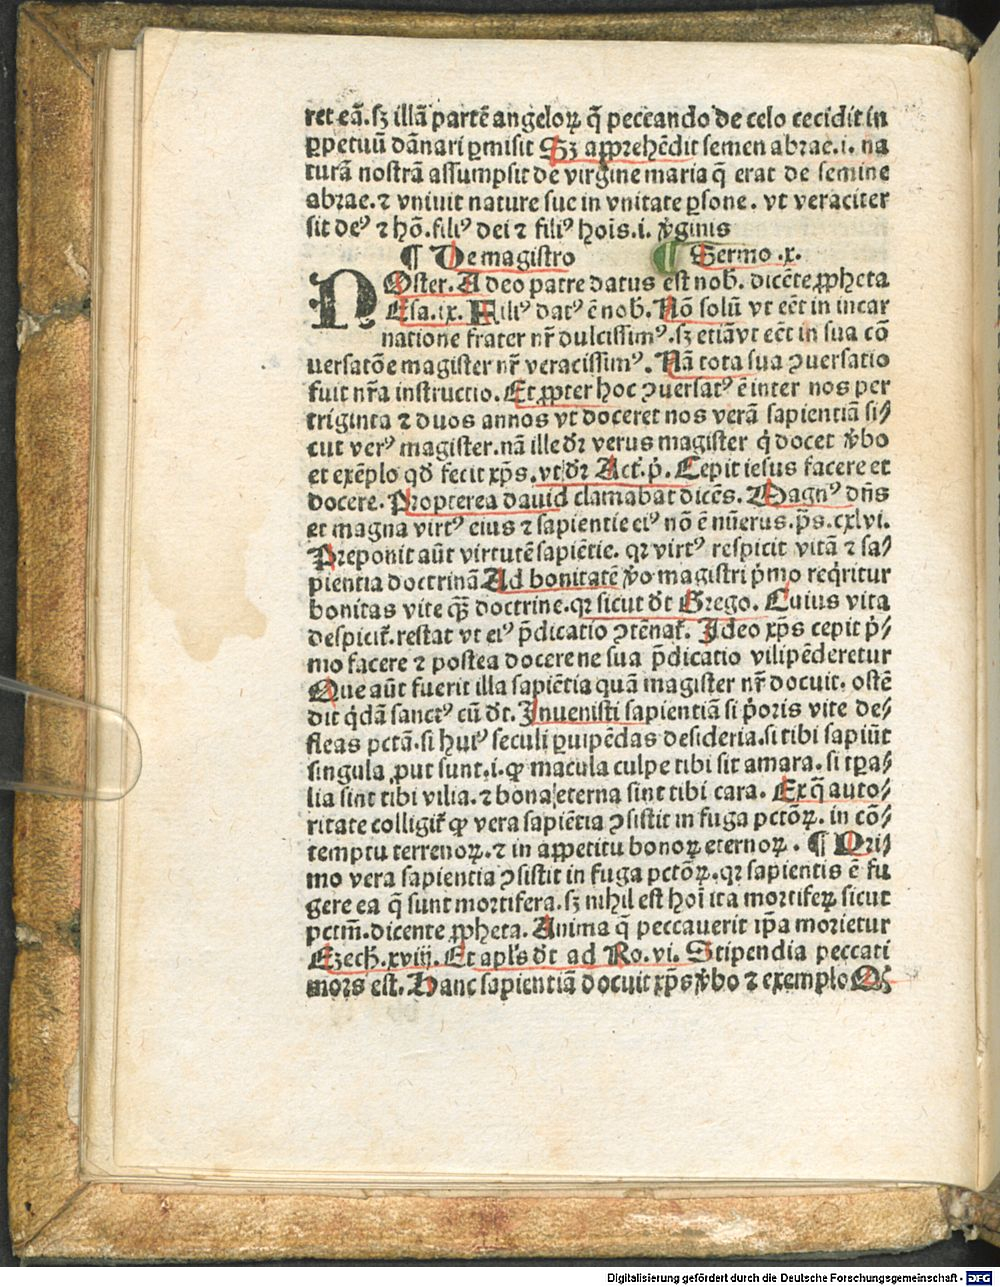 ret eã. sꝫ illã partẽ angeloꝝ q̃ peccando de celo cecidit in
ꝑpetuũ dãnari ꝑmisit Sꝫ apprehẽdit semen abrae .i. na
turã nostrã assumpsit de virgine maria q̃ erat de semine
abrae. ⁊ vniuit nature sue in vnitate ꝑsone. vt veraciter
sit deꝰ ⁊ hõ. filiꝰ dei ⁊ filiꝰ hois .i. v̓ginis
¶ De magistro ¶ Sermo .x.
NOster. A deo patre datus est nob̓. dicẽte ꝓpheta
Esa. ix. Filiꝰ datꝰ ẽ nob̓. Nõ solũ vt eẽt in incar
natione frater nr̃ dulcissimꝰ. sꝫ etiã vt eẽt in sua cõ
uersatõe magister nr̃ veracissimꝰ. Nã tota sua ꝯuersatio
fuit nr̃a instructio. Et ꝓpter hoc ꝯuersatꝰ ẽ inter nos per
triginta ⁊ duos annos vt doceret nos verã sapientiã si⸗
cut verꝰ magister. nã ille dr̃ verus magister q̇ docet v̓bo
et exẽplo qd̓ fecit xp̃s. vt dr̃ Act̓. p̓. Cepit iesus facere et
docere. Propterea dauid clamabat dicẽs. Magnꝰ dñs
et magna virtꝰ eius ⁊ sapientie eiꝰ nõ ẽ nũerus. ps̃. cxlvi.
Preponit aũt virtutẽ sapiẽtie. qꝛ virtꝰ respicit vitã ⁊ sa⸗
pientia doctrinã Ad bonitatẽ v̓o magistri p̓mo req̇ritur
bonitas vite q̃ꝫ doctrine. qꝛ sicut dt̓ Grego. Cuius vita
despicit̓. restat vt eiꝰ p̃dicatio ꝯtẽnat̓. Ideo xp̃s cepit p̓⸗
mo facere ⁊ postea docere ne sua p̃dicatio vilipẽderetur
Que aũt fuerit illa sapiẽtia quã magister nr̃ docuit. ostẽ
dit q̇dã sanctꝰ cũ dt̓. Inuenisti sapientiã si p̓oris vite de⸗
fleas pctã. si huiꝰ seculi ꝑuipẽdas desideria. si tibi sapiũt
singula ꝓut sunt .i. ꝙ macula culpe tibi sit amara. si tꝑa⸗
lia sint tibi vilia. ⁊ bona eterna sint tibi cara. Ex q̃ auto⸗
ritate colligit̓ ꝙ vera sapiẽtia ꝯsistit in fuga pctõꝝ. in cõ⸗
temptu terrenoꝝ. ⁊ in appetitu bonoꝝ eternoꝝ. ¶ Pri⸗
mo vera sapientia ꝯsistit in fuga pctõꝝ. qꝛ sapientis ẽ fu
gere ea q̃ sunt mortifera. sꝫ nihil est hoĩ ita mortifeꝝ sicut
pctm̃. dicente ꝓpheta. Anima q̃ peccauerit ip̃a morietur
Ezech̓. xviij. Et apl̃s dt̓ ad Ro. vi. Stipendia peccati
mors est. Hanc sapientiã docuit xp̃s v̓bo ⁊ exemplo
Digitalisierung gefördert durch die Deutsche Forschungsgemeinschaft - DFG